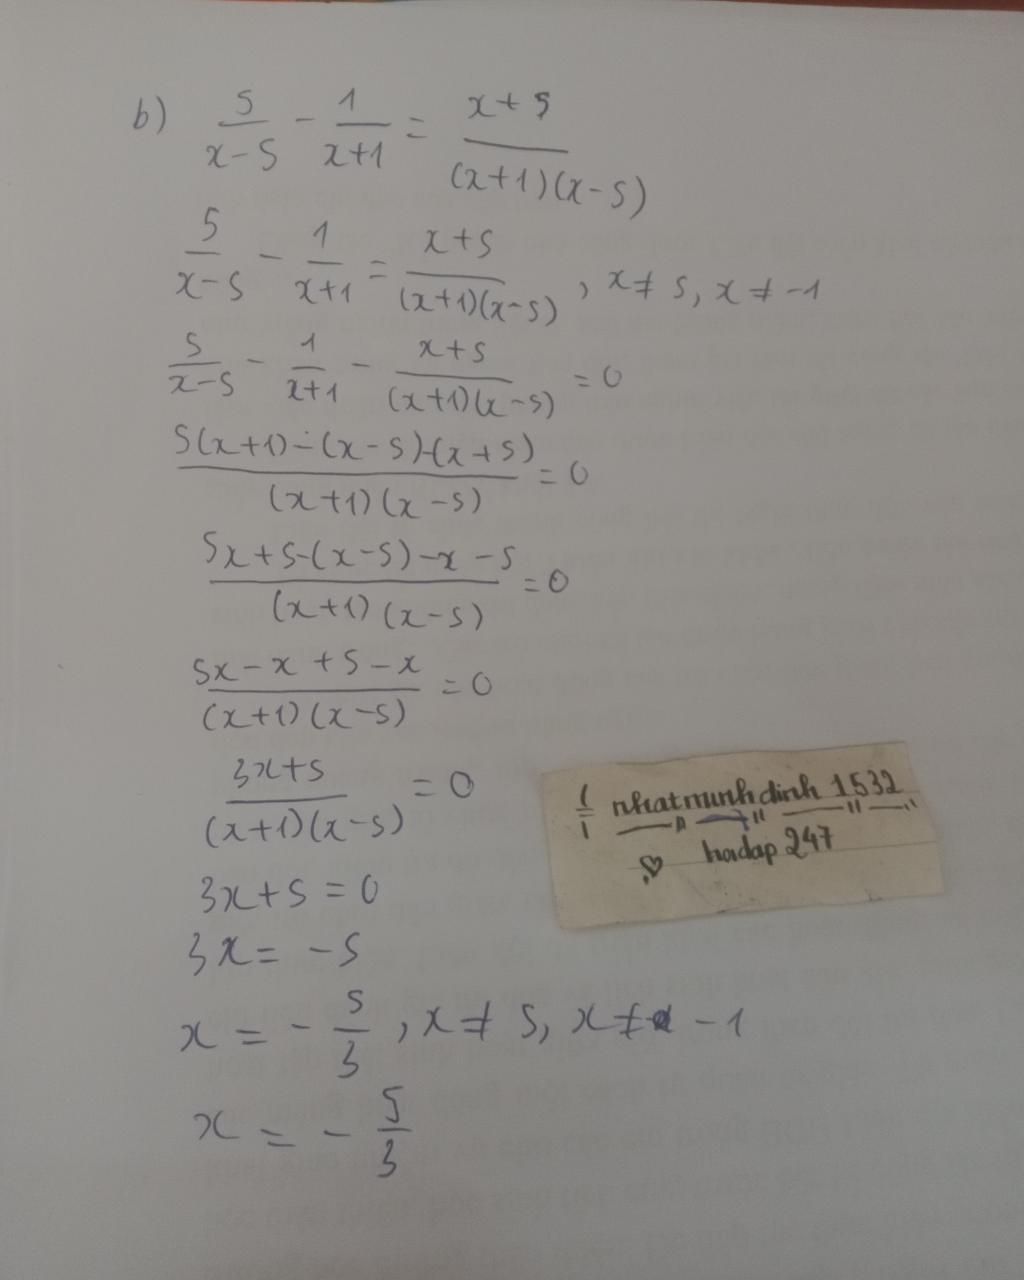 b) 5/(x-5) - 1/(x+1) = (x+5)/((x+1)(x-5))
5/(x-5) - 1/(x+1) = (x+5)/((x+1)(x-5)), x≠5, x≠-1
5/(x-5) - 1/(x+1) - (x+5)/((x+1)(x-5)) = 0
(5(x+1)-(x-5)-(x+5))/((x+1)(x-5)) = 0
(5x+5-(x-5)-x-5)/((x+1)(x-5)) = 0
(5x-x+5-x)/((x+1)(x-5)) = 0
(3x+5)/((x+1)(x-5)) = 0
3x+5 = 0
3x = -5
x = -5/3, x≠5, x≠-1
x = -5/3
nhatminhdinh 1532
hoidap 247